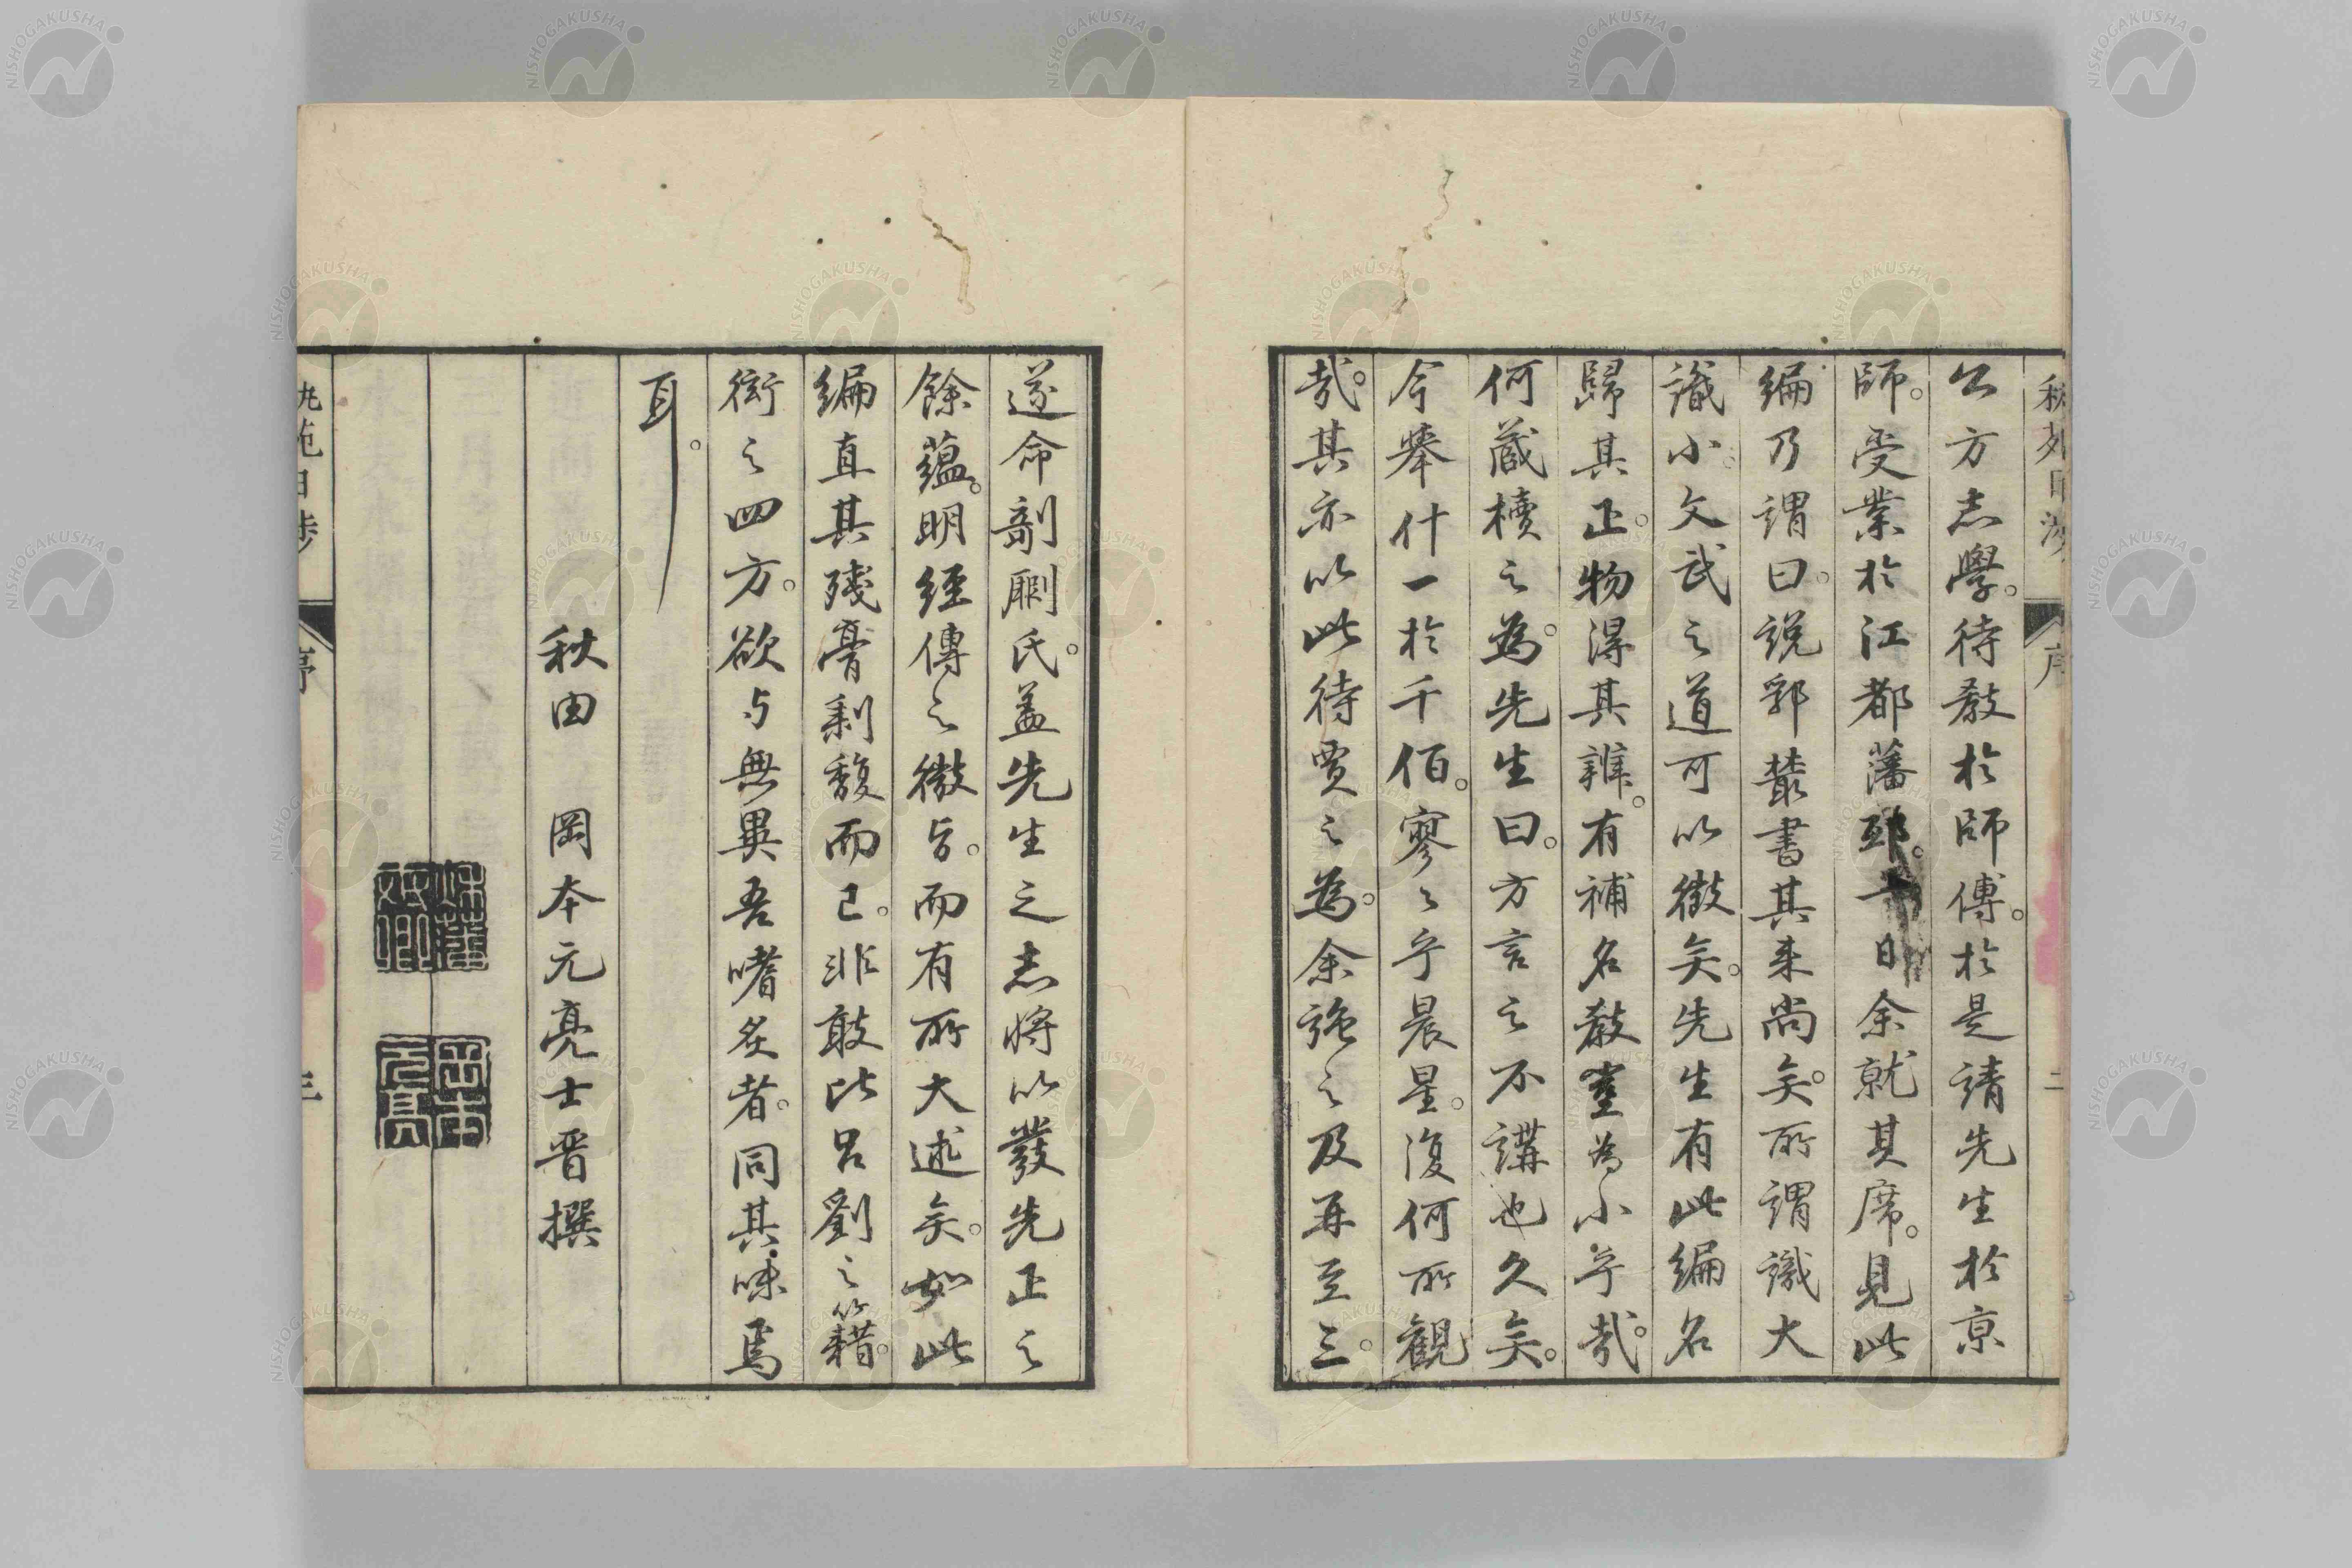 公方志學。待教於師傅。於是請先生於京
師。受業於江都藩邸。一日余就其席。見此
編乃謂曰。說郛叢書其来尚矣。所謂識大
識小。文武之道可以徵矣。先生有此編名
歸其正。物得其雜。有補名教。豈為小乎哉。
何蔵櫝之為。先生曰。方言之不講也久矣。
今擧什一於千佰。寥々乎晨星。復何所觀
哉。其亦以此待賈之為。余強之及再至三。
遂命剞劂氏。盖先生之志将以發先正之
餘蘊。明經傳之徵与。而有所大述矣。如此
編直其残膏剩馥而已。非敢比呂劉之籍。
衒之四方。欲与無異吾嗜炙者。同其味焉
耳。
秋田 岡本元亮士晋撰
秇苑日渉
序
二
秇苑日渉
序
三
NISHOGAKUSHA